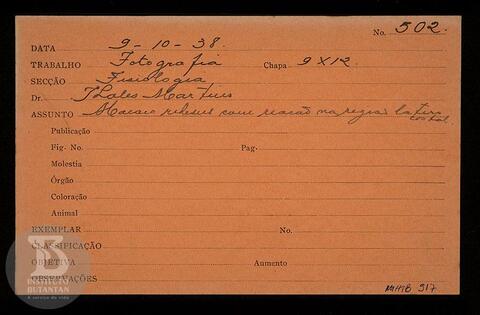 No. 502.
DATA 9-10-38.
TRABALHO Fotografia Chapa 9X12.
SECÇÃO Fisiologia
Dr. Thales Martins
ASSUNTO Macaco rhesus com reacão na região latero costal
Publicação
Fig. No. Pag.
Molestia
Órgão
Coloração
Animal
EXEMPLAR No.
CLASSIFICAÇÃO
OBJETIVA Aumento
OBSERVAÇÕES
INSTITUTO
BUTANTAN
A serviço da vida
MHIB 517